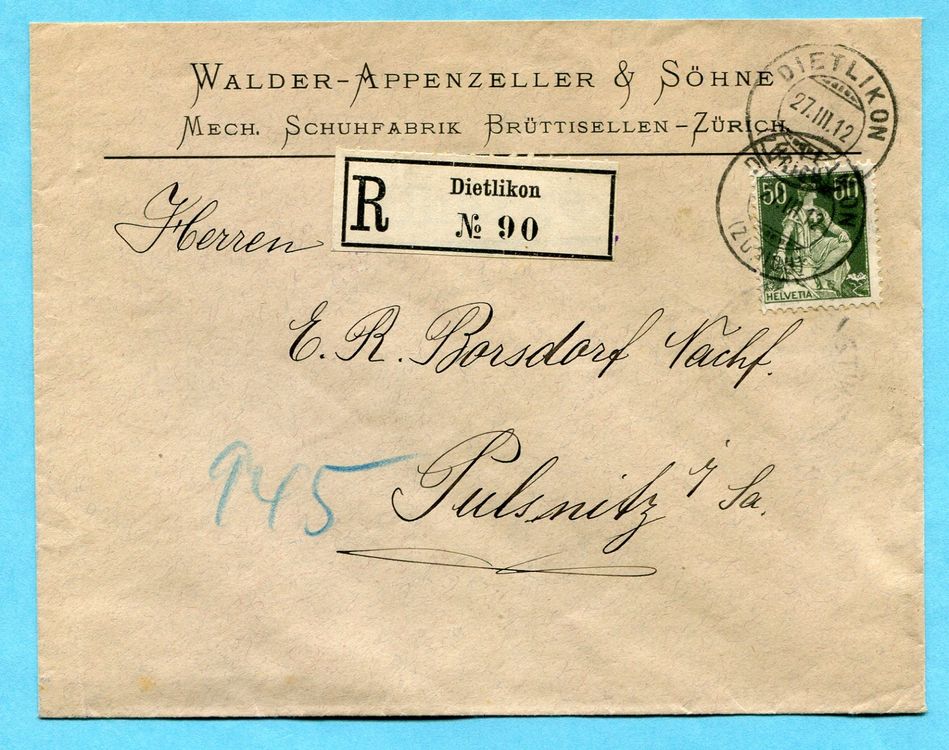 WALDER-APPENZELLER & SÖHNE
MECH. SCHUHFABRIK BRÜTTISELLEN-ZÜRICH.
DIETLIKON
27.III.12
R
Dietlikon
№ 90
50 50
HELVETIA
Herren
E. R. Borsdorf Nachf.
Pulsnitz i/ Sa.
945